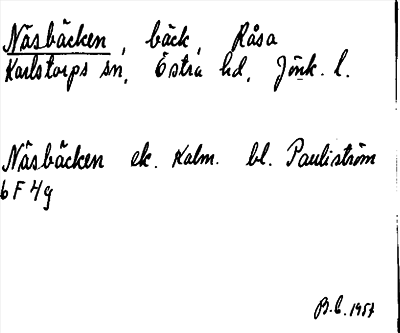 Näsbäcken, bäck, Råsa
Karlstorps sn, Östra hd, Jönk. l.
Näsbäcken ek. Kalm. bl. Pauliström
6 F 4g
B.E. 1957